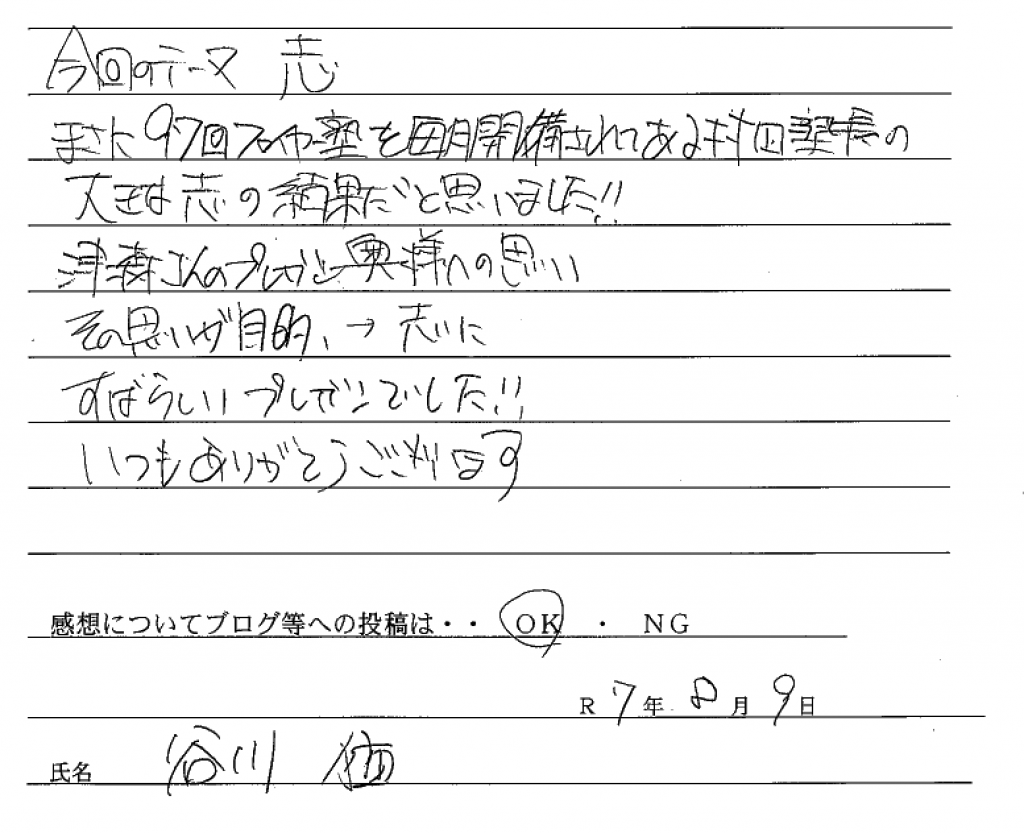 今回のテーマ 志
まさに97回フイヤー塾を毎月開備されてある村田塾長の
大きな志の結果だと思いました!!
津森さんのプレゼン奥様への思い
その思いが目的、→ 志いに
すばらしいプレゼンでした!!
いつもありがとうございます
感想についてブログ等への投稿は・・ OK ・ NG
R 7年 8月 9日
氏名 谷川